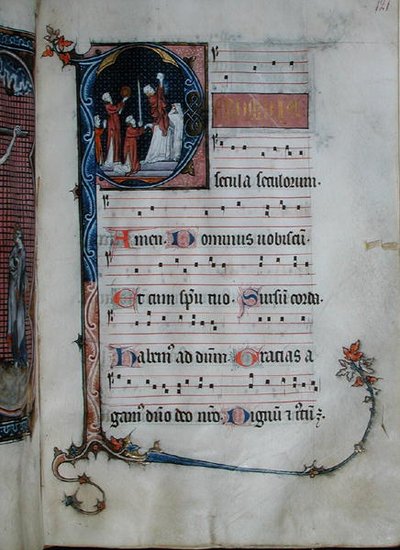 121
P
secula seculorum.
Amen. Dominus uobiscū.
Et cum spū tuo. Sursum corda.
Habem᷒ ad dūm. Gracias a
gam᷒ dn̄o deo nr̄o. Dignū ⁊